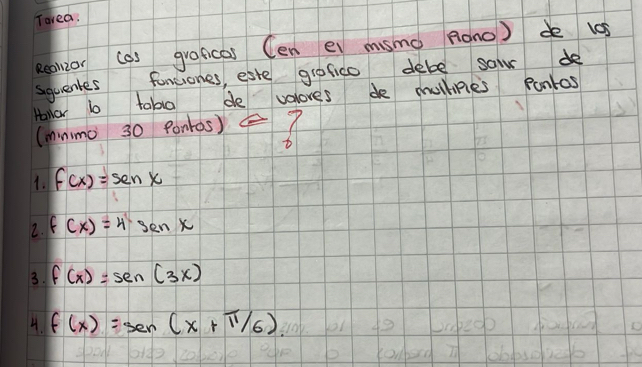 Tarea:
Realizar las graficas (en el mismo plano) de las
siguientes funciones, este grafico debe salir de
Hallar la tabla de valores de multiples puntos
(minimo 30 Pontos) ?
1. f(x) = sen x
2. f(x) = 4 sen x
3. f(x) = sen (3x)
4. f(x) = sen (x + π/6).